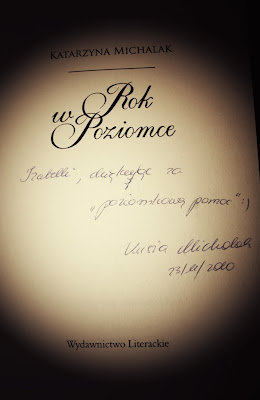 KATARZYNA MICHALAK
Rok
w Poziomce
Izabelli, dziękując za
"poziomkową pomoc" :)
Kasia Michalak
Wydawnictwo Literackie